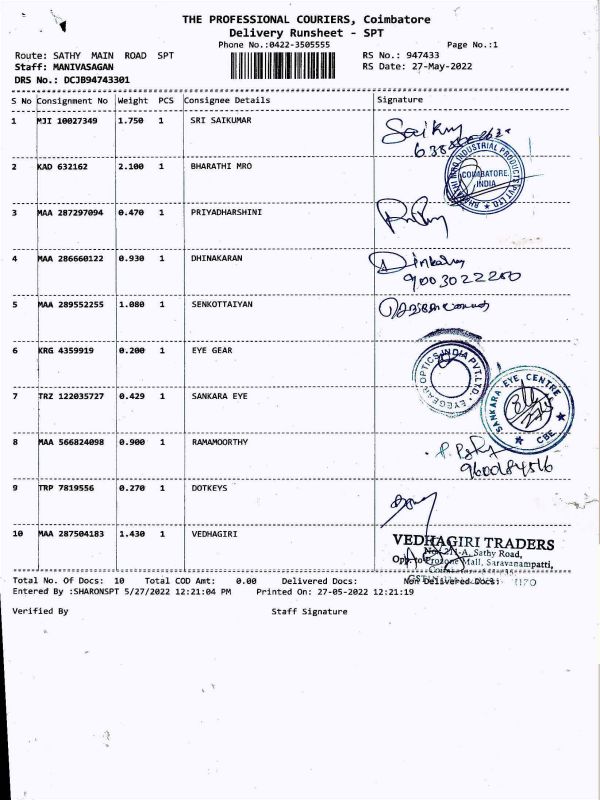 THE PROFESSIONAL COURIERS, Coimbatore
Delivery Runsheet - SPT
Phone No.:0422-3505555 Page No.:1
Route: SATHY MAIN ROAD SPT RS No.: 947433
Staff: MANIVASAGAN RS Date: 27-May-2022
DRS No.: DCJB94743301
S No Consignment No Weight PCS Consignee Details Signature
1 MJI 10027349 1.750 1 SRI SAIKUMAR
2 KAD 632162 2.100 1 BHARATHI MRO
BHARATHI MRO INDUSTRIAL PRODUCTS PVT LTD
COIMBATORE.
INDIA
3 MAA 287297094 0.470 1 PRIYADHARSHINI
4 MAA 286660122 0.930 1 DHINAKARAN
5 MAA 289552255 1.080 1 SENKOTTAIYAN
6 KRG 4359919 0.200 1 EYE GEAR
EYEGEAR OPTICS INDIA PVT. LTD.
7 TRZ 122035727 0.429 1 SANKARA EYE
SANKARA EYE CENTRE
CBE
8 MAA 566824098 0.900 1 RAMAMOORTHY
9 TRP 7819556 0.270 1 DOTKEYS
10 MAA 287504183 1.430 1 VEDHAGIRI
VEDHAGIRI TRADERS
Sathy Road,
Opp. to Prozone Mall, Saravanampatti,
Total No. Of Docs: 10 Total COD Amt: 0.00 Delivered Docs: Non Delivered Docs:
Entered By :SHARONSPT 5/27/2022 12:21:04 PM Printed On: 27-05-2022 12:21:19
Verified By Staff Signature